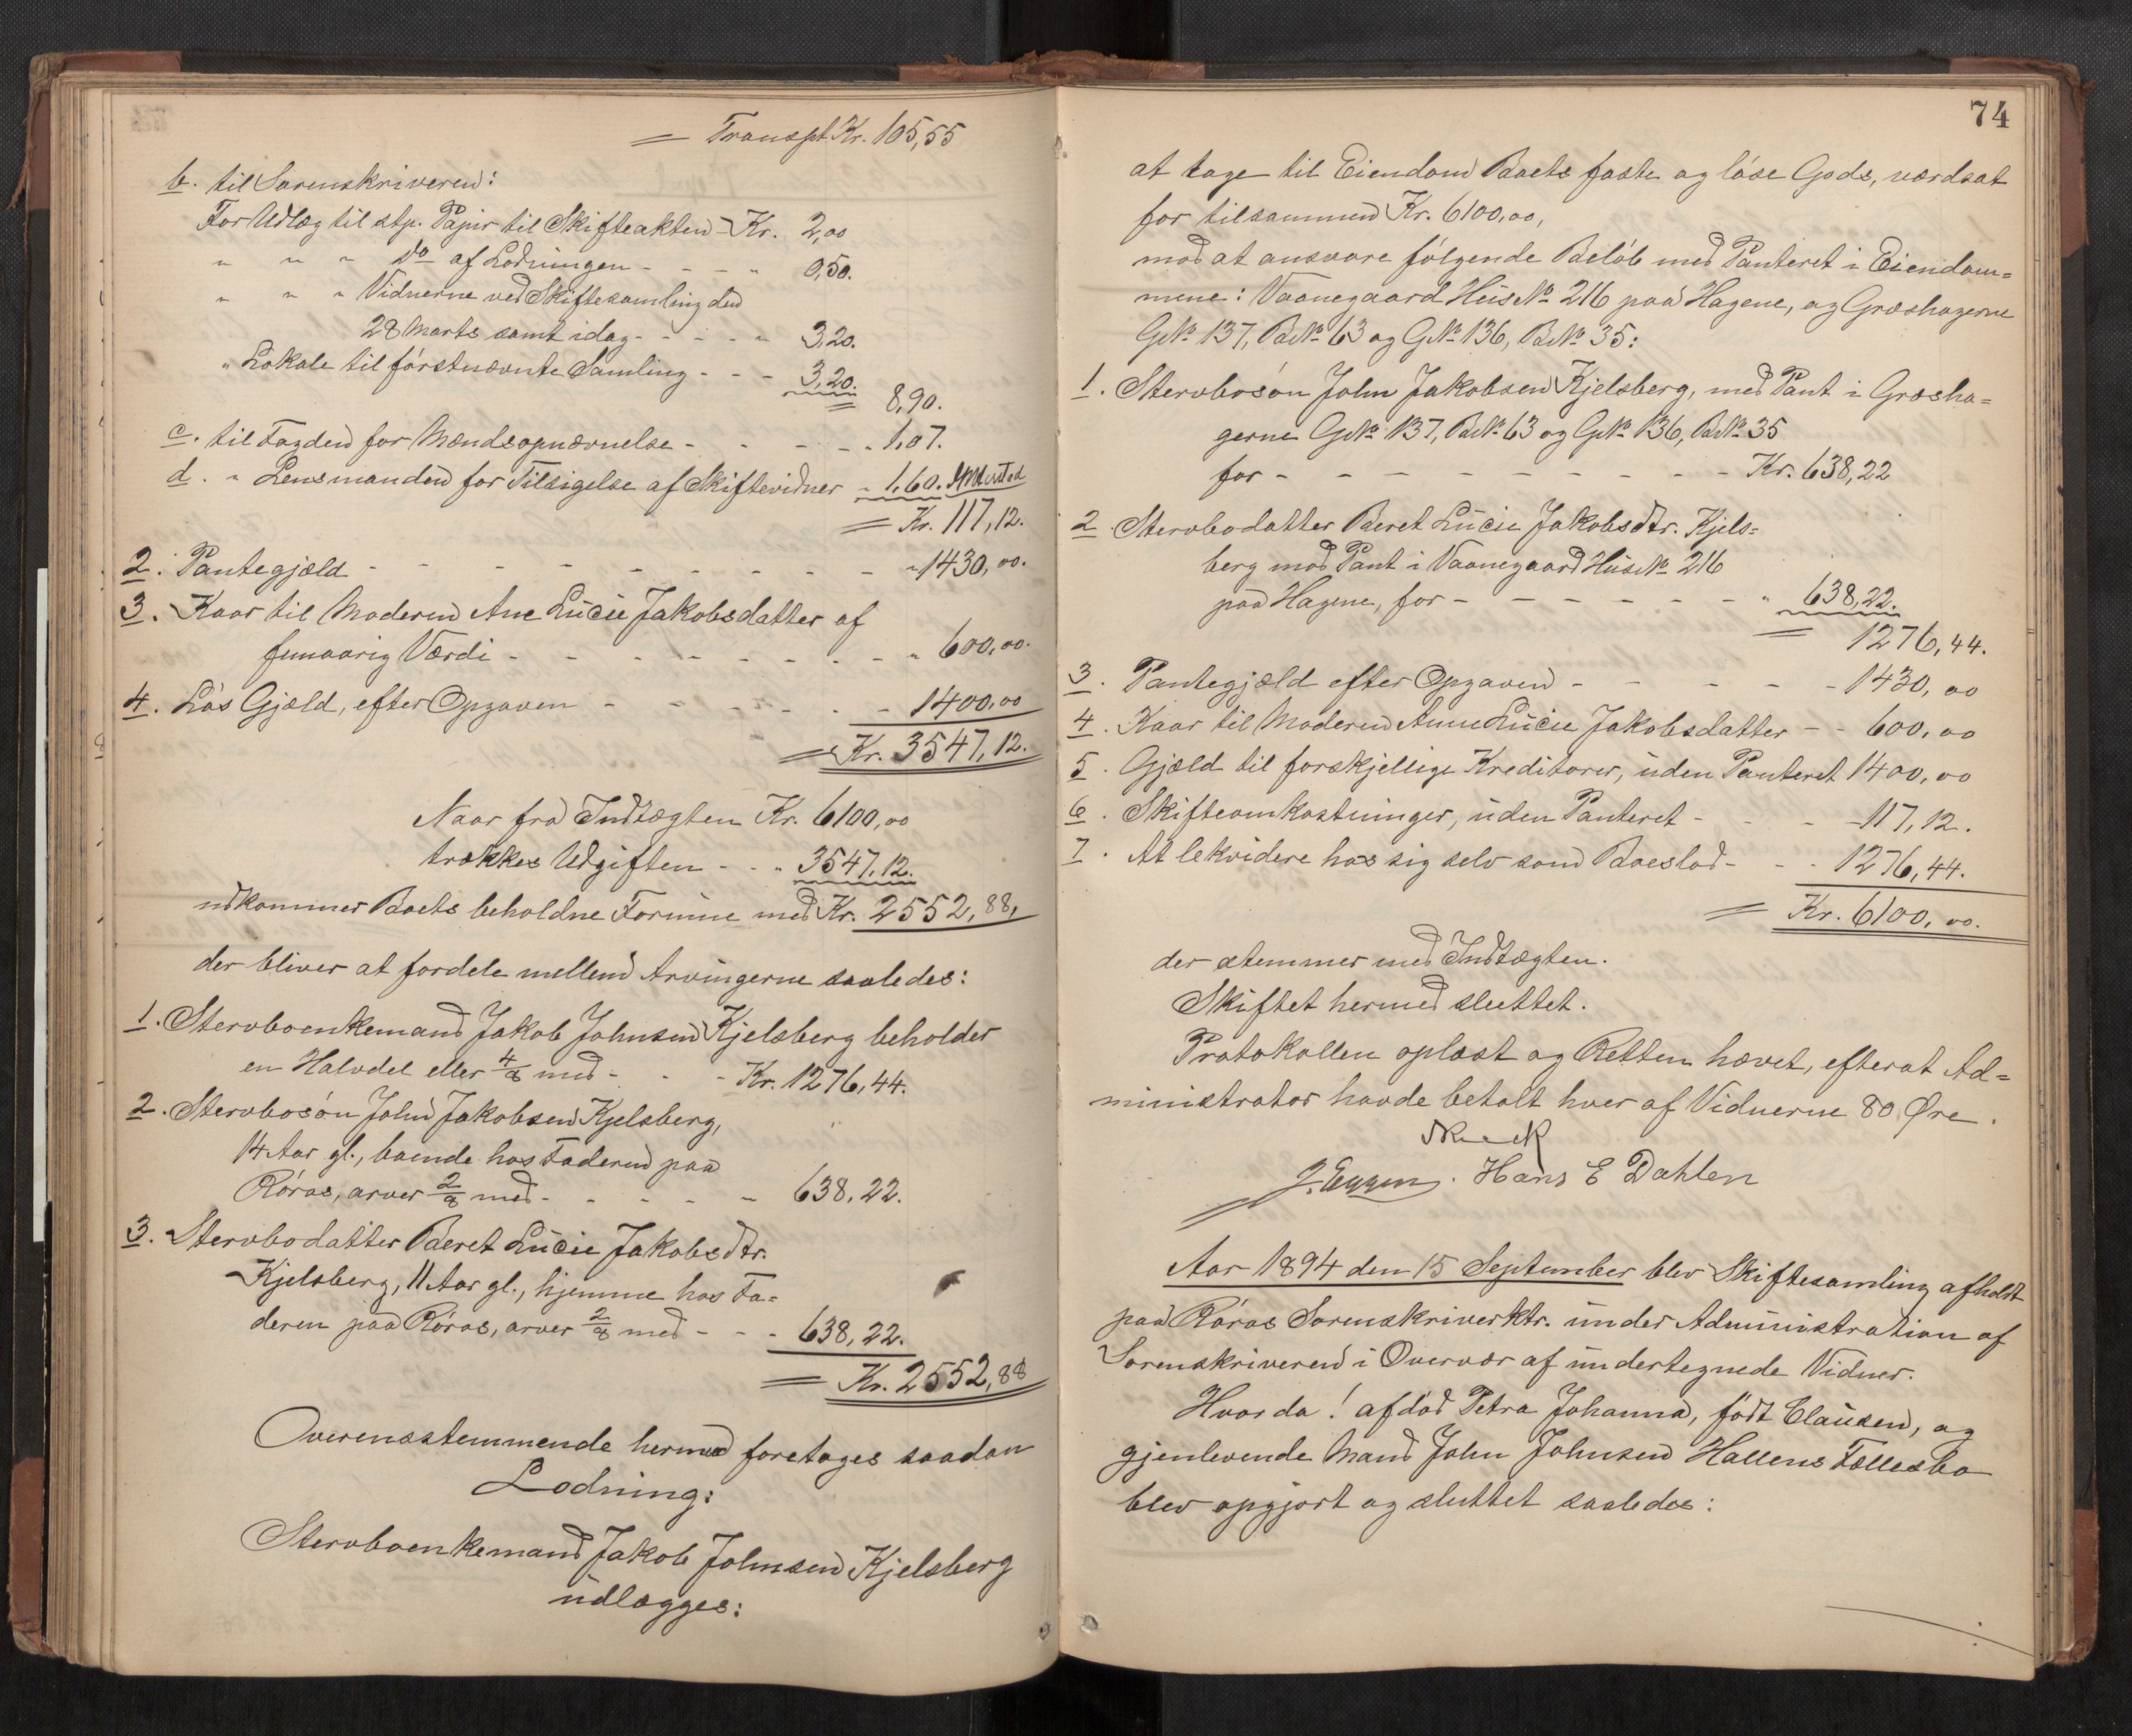 = Transpt Kr. 105,55
b. til Sorenskriveren:
For Udlæg til stp. Papir til Skifteakten - Kr. 2,00
" " " do af Lodningen - - - - " 0,50.
" " " Vidnerne ved Skiftesamling den
28 Marts samt idag - - - - - " 3,20.
" Lokale til førstnævnte Samling - - - 3,20.
= 8,90.
c. til Fogden for Mændsopnævnelse - - - - - 1,07.
d. " Lensmanden for Tilsigelse af Skiftevidner - 1,60.
= Kr. 117,12.
2. Pantegjæld - - - - - - - - - - " 1430,00.
3. Kaar til Moderen Ane Lucie Jakobsdatter af
femaarig Værdi - - - - - - - - - " 600,00.
4. Løs Gjæld, efter Opgaven - - - - - - - 1400,00
= Kr. 3547,12.
Naar fra Indtægten Kr. 6100,00
trækkes Udgiften - - " 3547,12.
udkommer Boets beholdne Formue med Kr. 2552,88,
der bliver at fordele mellem Arvingerne saaledes:
1. Stervboenkemand Jakob Johnsen Kjelsberg beholder
en Halvdel eller 4/8 med - - - Kr. 1276,44.
2. Stervbosøn John Jakobsen Kjelsberg,
14 Aar gl., boende hos Faderen paa
Røros, arver 2/8 med - - - - - 638,22.
3. Stervbodatter Beret Lucie Jakobsdtr.
Kjelsberg, 11 Aar gl., hjemme hos Fa=
deren paa Røros, arver 2/8 med - - - 638,22.
= Kr. 2552,88
Overensstemmende hermed foretages saadan
Lodning:
Stervboenkemand Jakob Johnsen Kjelsberg
udlægges:
74
at tage til Eiendom Boets faste og løse Gods, værdsat
for tilsammen Kr. 6100,00,
mod at ansvare følgende Beløb med Panteret i Eiendom=
mene: Vaanegaard Hus No 216 paa Hagene, og Græshagerne
G.No 137, B.No 63 og G.No 136, B.No 35:
1. Stervbosøn John Jakobsen Kjelsberg, med Pant i Græsha=
gerne G.No 137, B.No 63 og G.No 136, B.No 35
for - - - - - - - - - - Kr. 638,22
2. Stervbodatter Beret Lucie Jakobsdtr. Kjels=
berg mod Pant i Vaanegaard Hus No 216
paa Hagene, for - - - - - - - " 638,22.
= 1276,44.
3. Pantegjæld efter Opgaven - - - - - - 1430,00
4. Kaar til Moderen Anne Lucie Jakobsdatter - - 600,00
5. Gjæld til forskjellige Kreditorer, uden Panteret 1400,00
6. Skifteomkostninger, uden Panteret - - - - 117,12.
7. At lekvidere hos sig selv som Boeslod - - - 1276,44.
= Kr. 6100,00.
der stemmer med Indtægten.
Skiftet hermed sluttet.
Protokollen oplæst og Retten hævet, efterat Ad=
ministrator havde betalt hver af Vidnerne 80 Øre.
J. Eggen. Hans E Dahlen
Aar 1894 den 15 September blev Skiftesamling afholdt
paa Røros Sorenskriverktr. under Administration af
Sorenskriveren i Overvær af undertegnede Vidner.
Hvor da! afdød Petra Johanna, født Clausen, og
gjenlevende Mand John Johnsen Hallens Fællesbo
blev opgjort og sluttet saaledes: